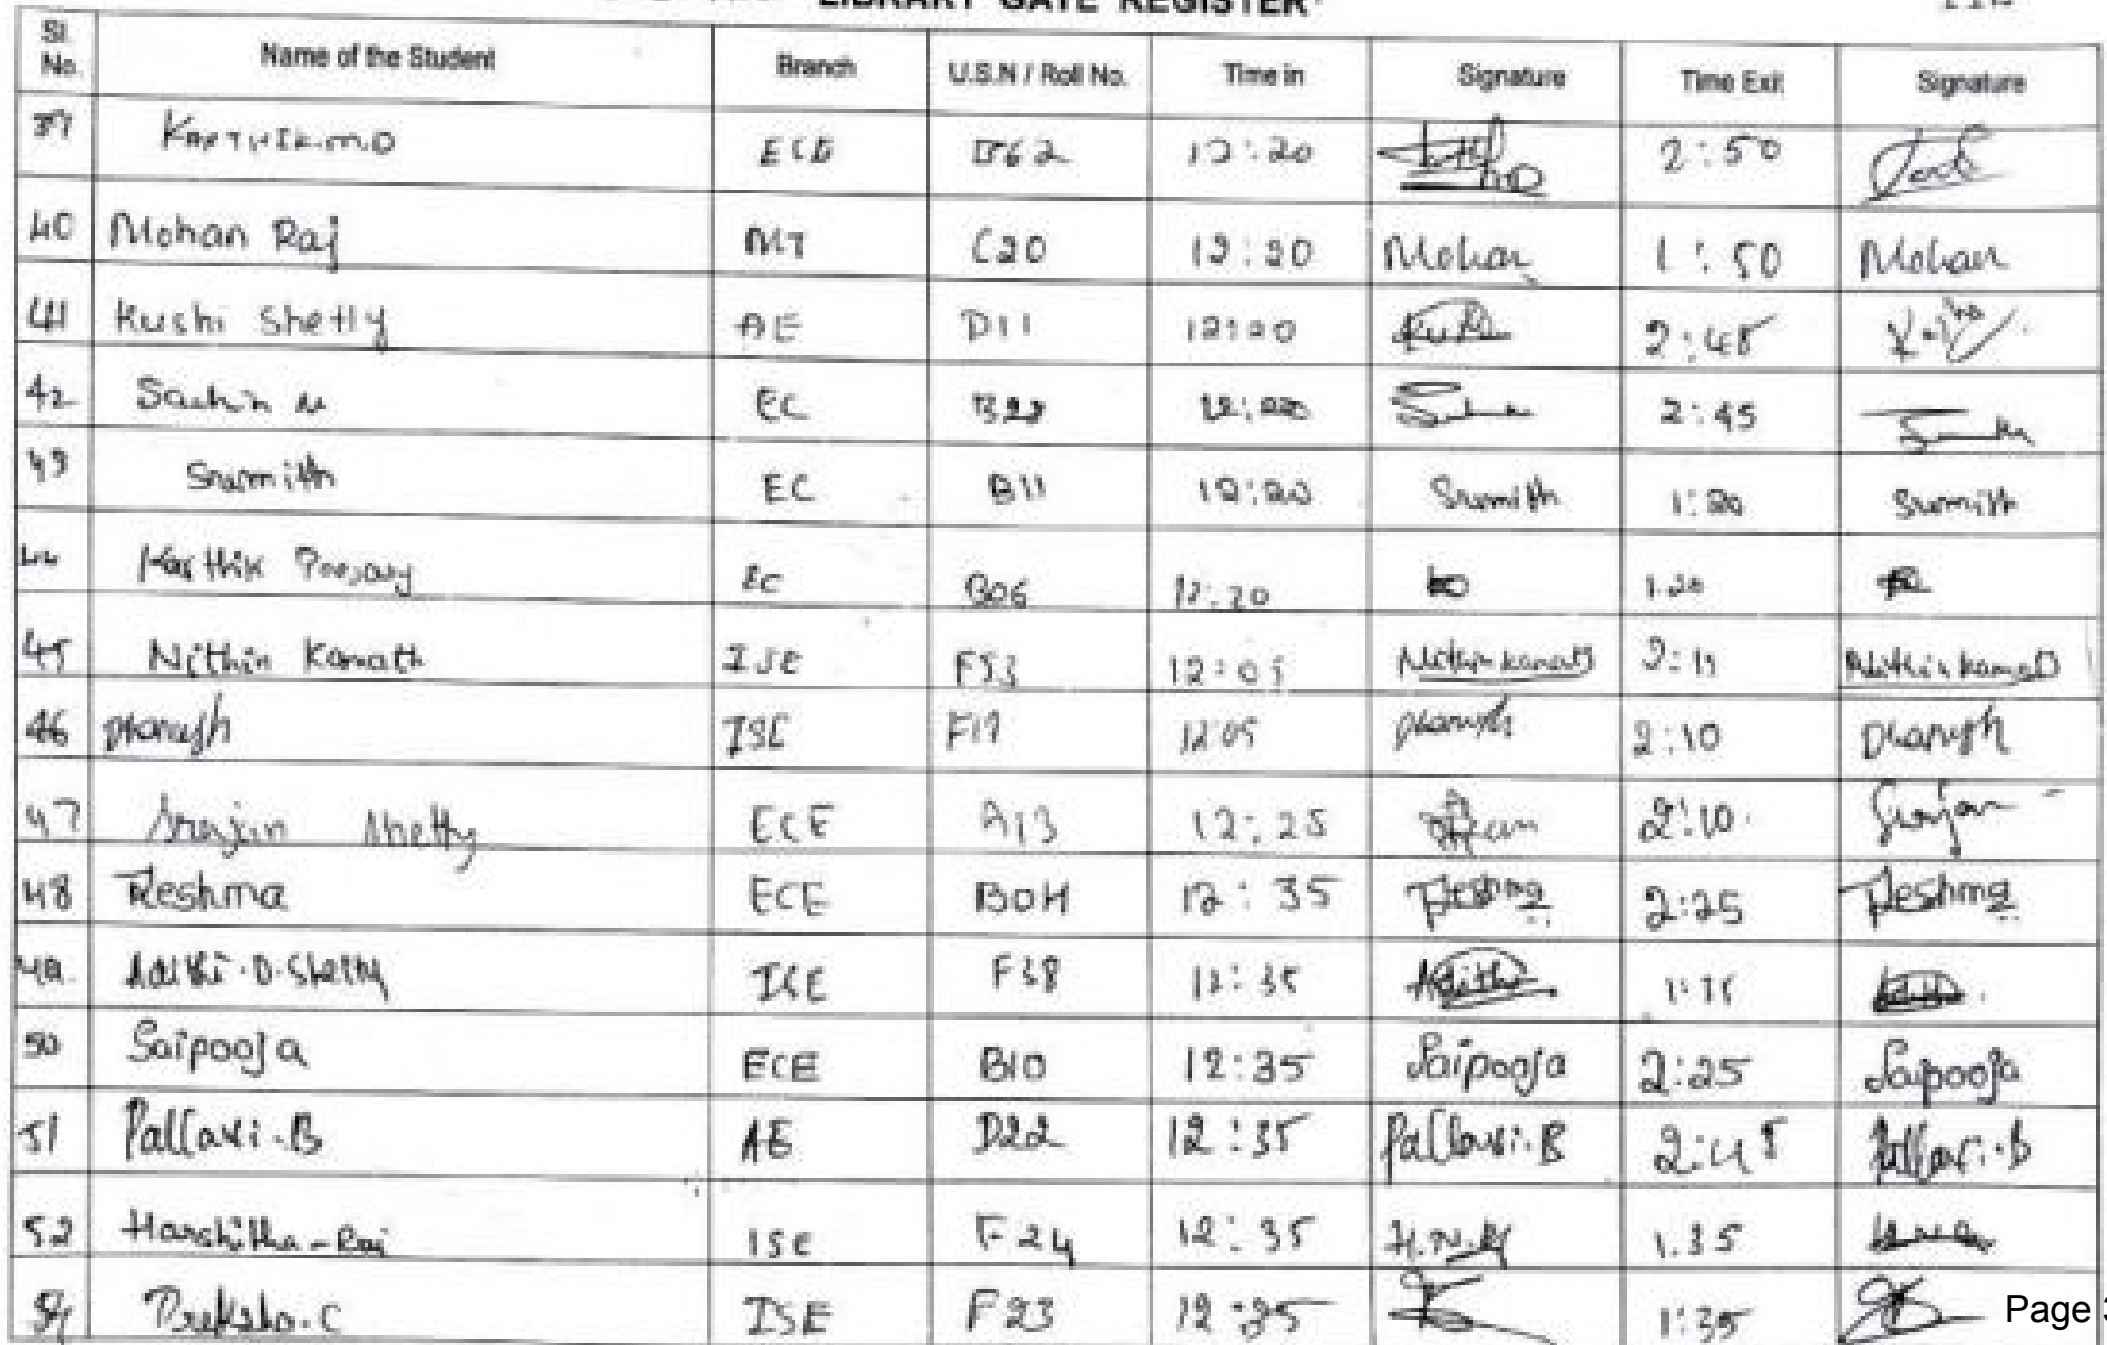 LIBRARY GATE REGISTER
Sl. No. Name of the Student Branch U.S.N / Roll No. Time in Signature Time Exit Signature
KARTHIK.M.D ECE B62 12:20 2:50
40 Mohan Raj MT C20 12:20 Mohan 1:50 Mohan
41 Kushi Shetty AE D11 12:20 2:45
42 Sachin N EC B22 12:20 2:45
43 EC B11 12:20 1:20
44 Karthik Poojary EC B06 12:20 1.20
45 Nithin Kamath ISE F53 12:05 Nithin kamath 2:11 Nithin kamath
46 Dhanush ISE 12:05 Dhanush 2:10 Dhanush
47 Shetty ECE A13 12:25 2:10 Srajan
48 Reshma ECE B04 12:35 Reshma 2:25 Reshma
49. Adithi.D.Shetty ISE F38 12:35 Adithi
50 Saipooja ECE B10 12:35 Saipooja 2:25 Saipooja
51 Pallavi.B AE D22 12:35 Pallavi.B 2:45 Pallavi.B
52 Harshitha-Rai ISE F24 12:35 1.35
Preksha.C ISE F23 1:35
Page